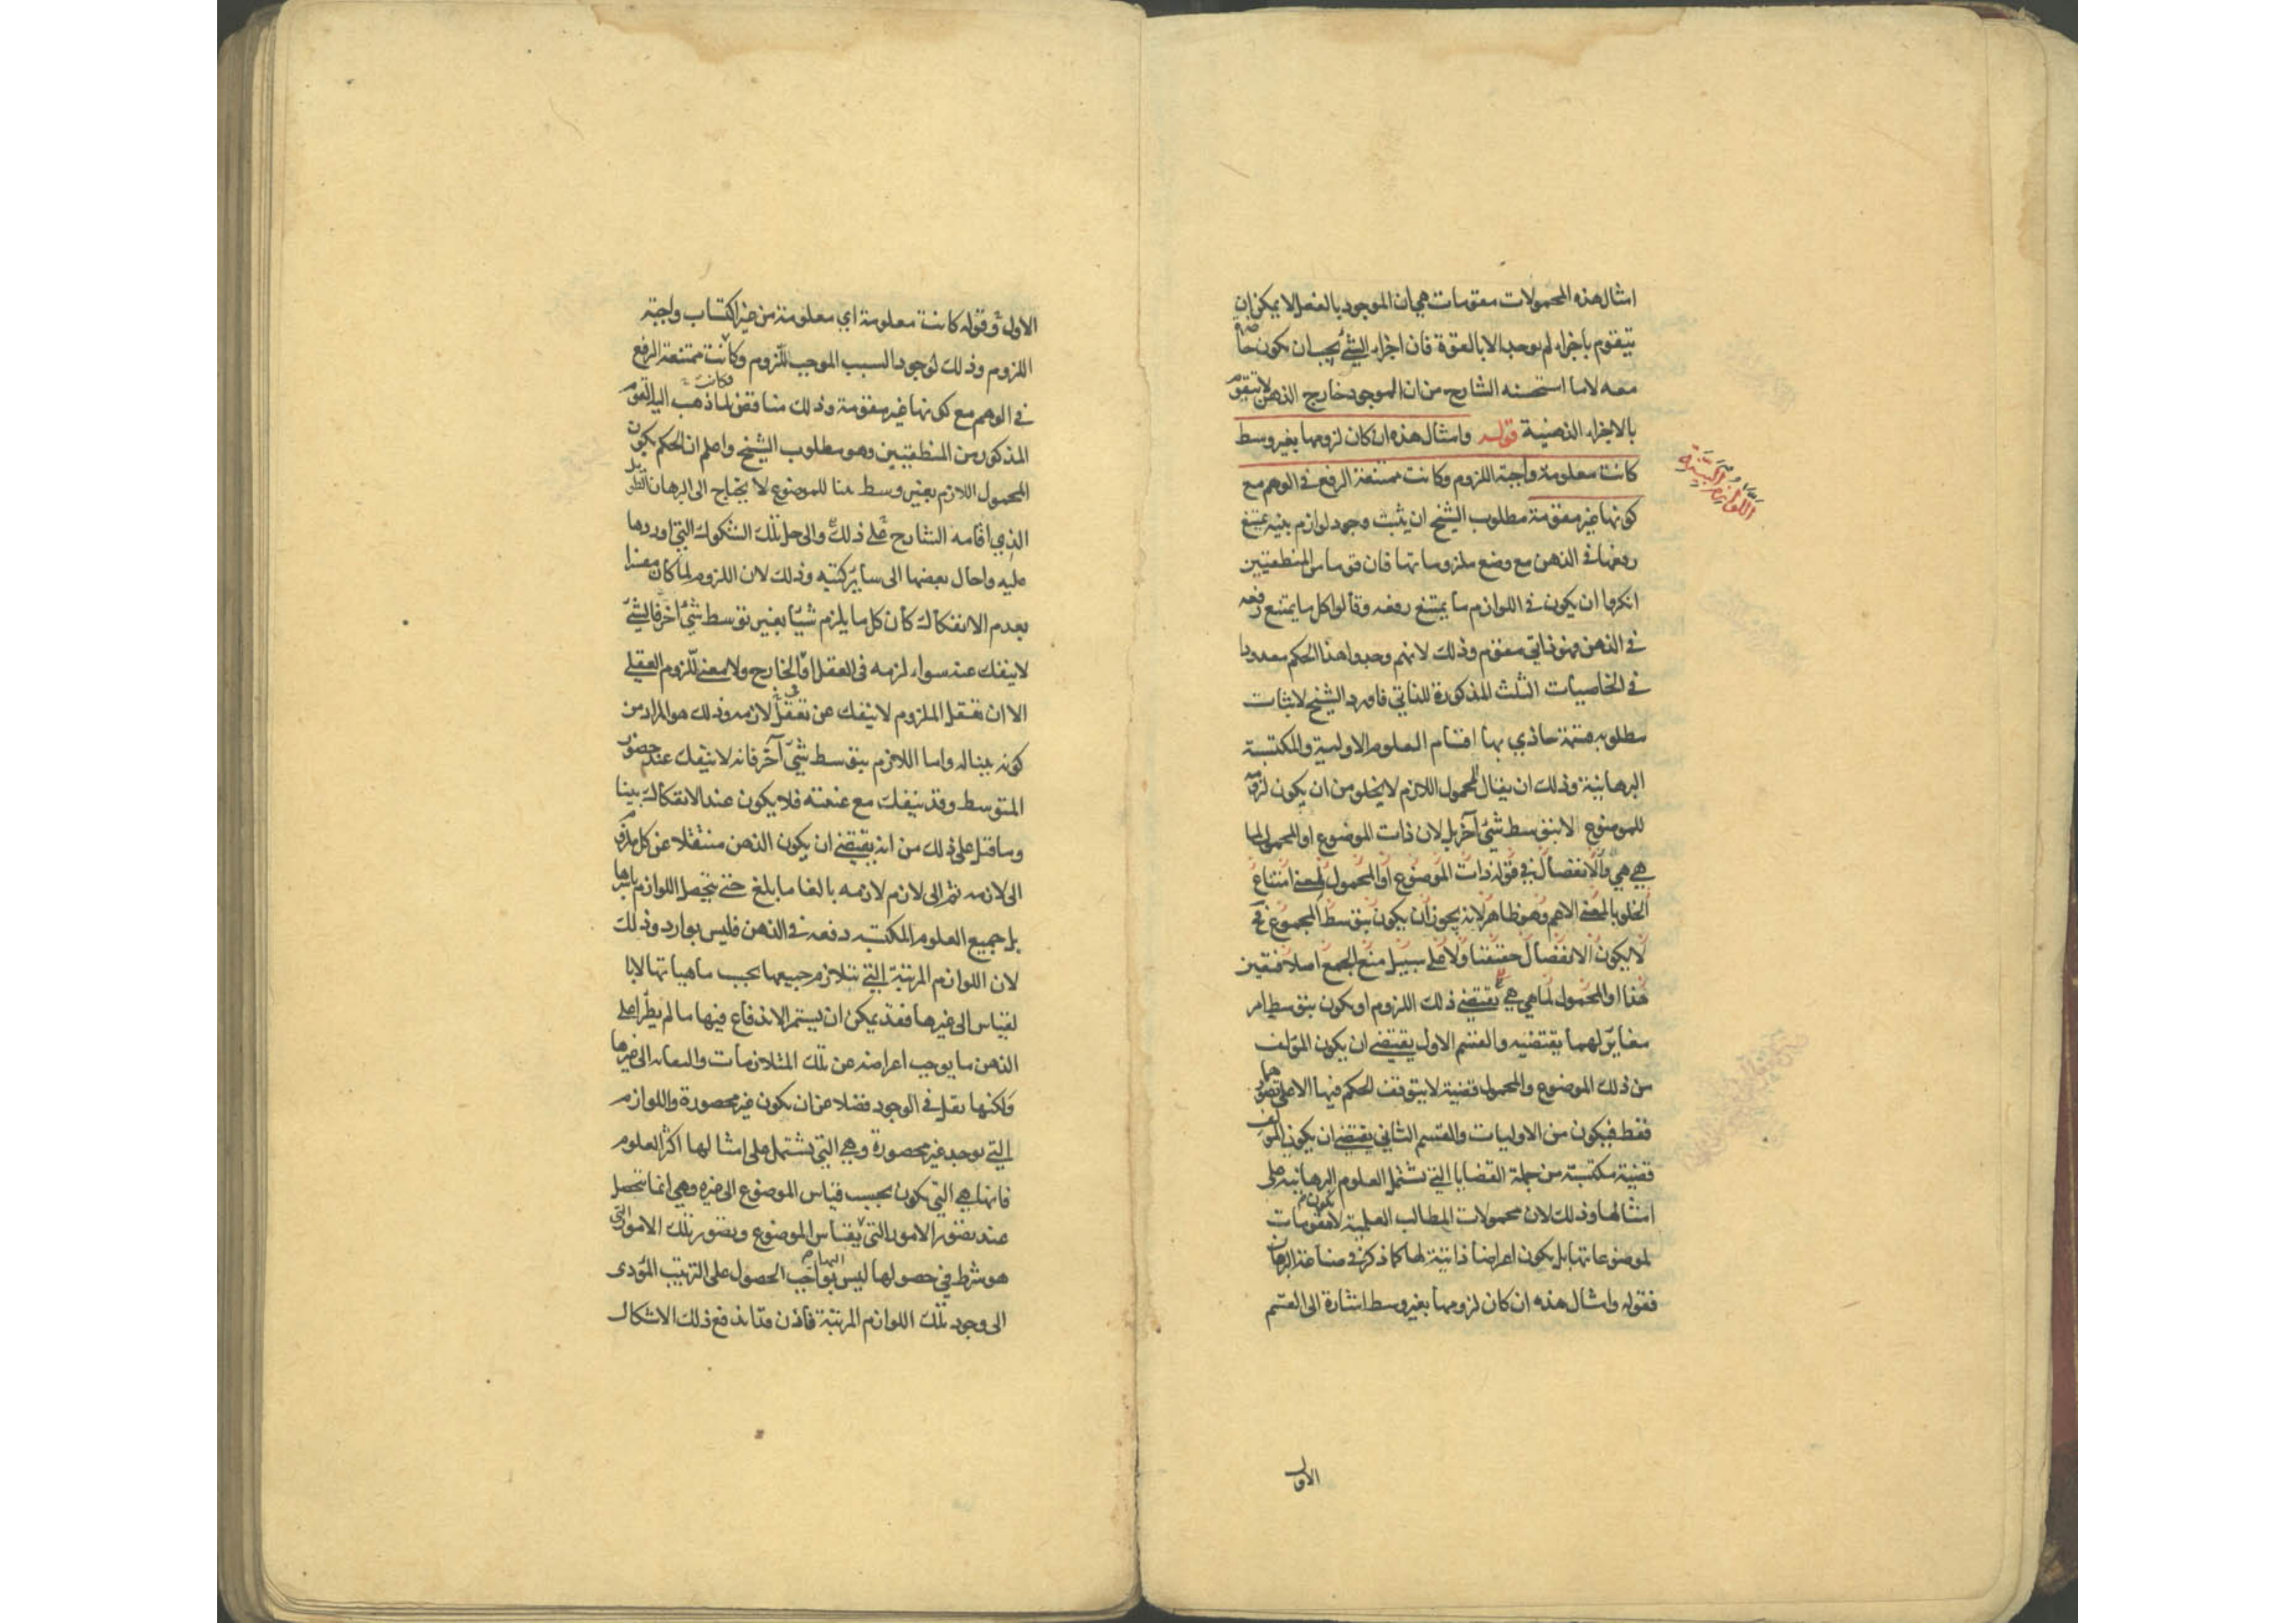 امثال هذه المحمولات مقومات هي ان الموجود بالفعل لا يمكن ان
يتقوم باجزاء لم يوجد الا بالقوة فان اجزاء الشئ يجب ان يكون حاصلة
معه لا ما استحسنه الشارح من ان الموجود خارج الذهن لا يتقوم
بالاجزاء الذهنية قوله وامثال هذه ان كان لزومها بغير وسط
كانت معلومة واجبة اللزوم وكانت ممتنعة الرفع في الوهم مع
اللوازم البينة
كونها غير مقومة مطلوب الشيخ ان يثبت وجود لوازم بينة يمتنع
رفعها في الذهن مع وضع ملزوماتها فان قوما من المنطقيين
انكروا ان يكون في اللوازم ما يمتنع رفعه وقالوا كل ما يمتنع رفعه
في الذهن فهو ذاتي مقوم وذلك لانهم وجدوا هذا الحكم معدودا
في الخاصيات الثلث المذكورة للذاتي فاورد الشيخ لاثبات
مطلوبه قسمة حاذي بها اقسام العلوم الاولية والمكتسبة
البرهانية وذلك ان يقال المحمول اللازم لا يخلو من ان يكون لزومه
للموضوع لا بتوسط شئ آخر بل لان ذات الموضوع او المحمول لما
هي هي والانفصال في قوله ذات الموضوع او المحمول بمعنى امتناع
الخلو بالمعنى الاعم وهو ظاهر لانه يجوز ان يكون بتوسط المجموع فح
لا يكون الانفصال حقيقيا ولا على سبيل منع الجمع اصلا فتعين
هذا او المحمول لما هي هي يقتضي ذلك اللزوم او يكون بتوسط امر
مغاير لهما يقتضيه والقسم الاول يقتضي ان يكون المؤلف
من ذلك الموضوع والمحمول قضية لا يتوقف الحكم فيها الا على تصورهما
فقط فيكون من الاوليات والقسم الثاني يقتضي ان يكون المؤلف
قضية مكتسبة من جملة القضايا التي تشتمل العلوم البرهانية على
امثالها وذلك لان محمولات المطالب العلمية لا يكون مقومات
لموضوعاتها بل يكون اعراضا ذاتية لها كما ذكر في صناعة البرهان
فقوله وامثال هذه ان كان لزومها بغير وسط اشارة الى القسم
الاول
الاول وقوله كانت معلومة اي معلومة من غير اكتساب واجبة
اللزوم وذلك لوجود السبب الموجب للزوم وكانت ممتنعة الرفع
في الوهم مع كونها غير مقومة وذلك مناقض لما ذهب اليه القوم
وكانت
المذكورون من المنطقيين وهو مطلوب الشيخ واعلم ان الحكم بكون
المحمول اللازم بغير وسط بينا للموضوع لا يحتاج الى البرهان الطويل
الذي اقامه الشارح على ذلك والى حل تلك الشكوك التي اوردها
عليه واحال بعضها الى سائر كتبه وذلك لان اللزوم لما كان مفسرا
بعدم الانفكاك كان كل ما يلزم شيئا بغير توسط شئ آخر فالشئ
لا ينفك عنه سواء لزمه في العقل او الخارج ولا معنى للزوم العقلي
الا ان تعقل الملزوم لا ينفك عن تعقل لازمه وذلك هو المراد من
كونه بينا له واما اللازم بتوسط شئ آخر فانه لا ينفك عند حضور
المتوسط وقد ينفك مع غيبته فلا يكون عند الانفكاك بينا
وما قيل على ذلك من انه يقتضي ان يكون الذهن منتقلا عن كل ملزوم
الى لازمه ثم الى لازم لازمه بالغا ما بلغ حتى يتحصل اللوازم باسرها
بل جميع العلوم المكتسبة دفعه في الذهن فليس بوارد وذلك
لان اللوازم المرتبة التي تتلازم جميعها بحسب ماهياتها لا با
لقياس الى غيرها فقد يمكن ان يستمر الاندفاع فيها ما لم يطرأ على
الذهن ما يوجب اعراضه عن تلك المتلازمات والتفاته الى غيرها
ولكنها تقل في الوجود فضلا عن ان يكون غير محصورة واللوازم
التي توجد غير محصورة وهي التي تشتمل على امثالها اكثر العلوم
فانها هي التي يكون بحسب قياس الموضوع الى غيره وهي انما تحصل
عند تصور الامور التي يقاس الموضوع وتصور تلك الامور التي
اليها
هو شرط في حصولها ليس بواجب الحصول على الترتيب المؤدى
الى وجود تلك اللوازم المرتبة فاذن قد اندفع ذلك الاشكال